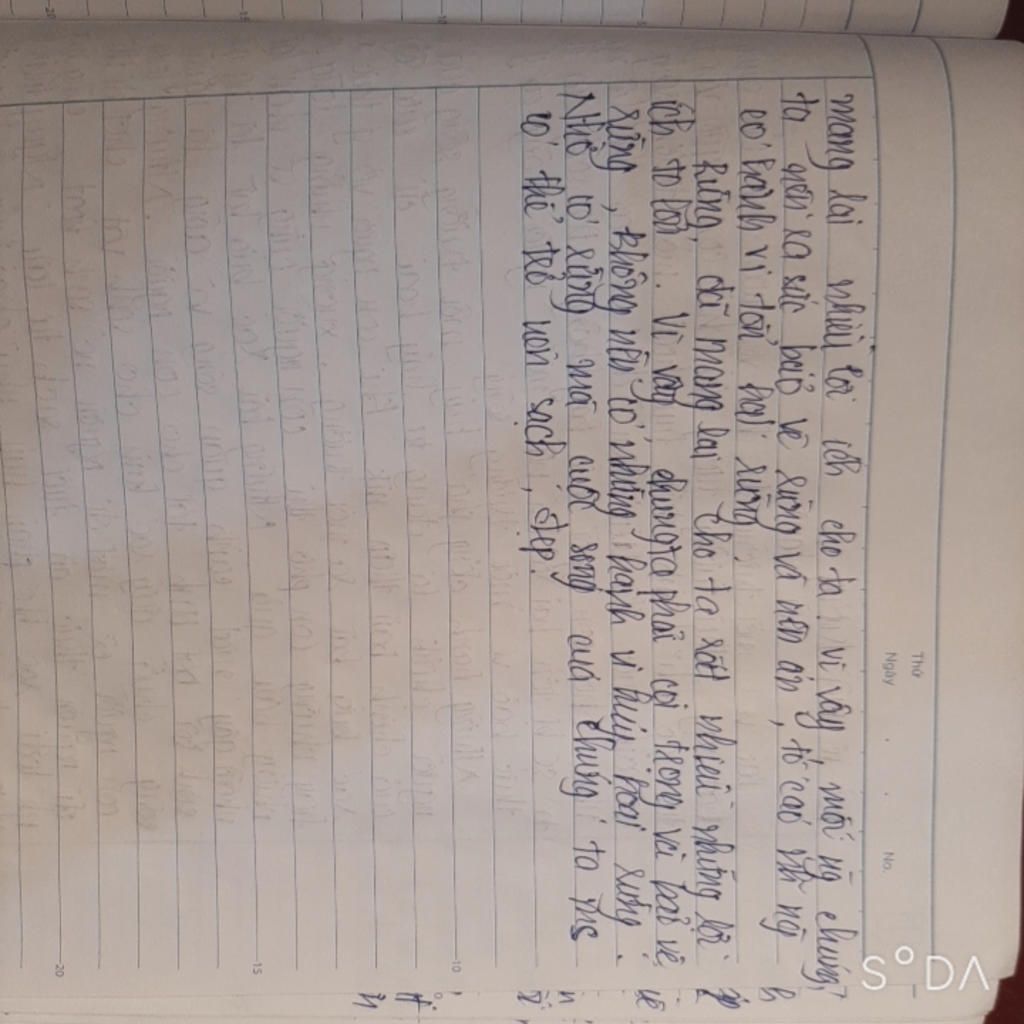 Thứ
Ngày
No.
mang lại nhiều lợi ích cho ta vì vậy mỗi ng chúng
ta nên ra sức bảo vệ rừng và nên án, tố cáo nh ng
có hành vi tổn hại rừng
Rừng, đã mang lại cho ta rất nhiều những lợi
ích to lớn. Vì vậy chúng ta phải coi trọng và bảo vệ
rừng, không nên có những hành vi hủy hoại rừng.
Nhờ có rừng mà cuộc sống của chúng ta ms
có thể trở nên sạch, đẹp.
10
15
20
SODA